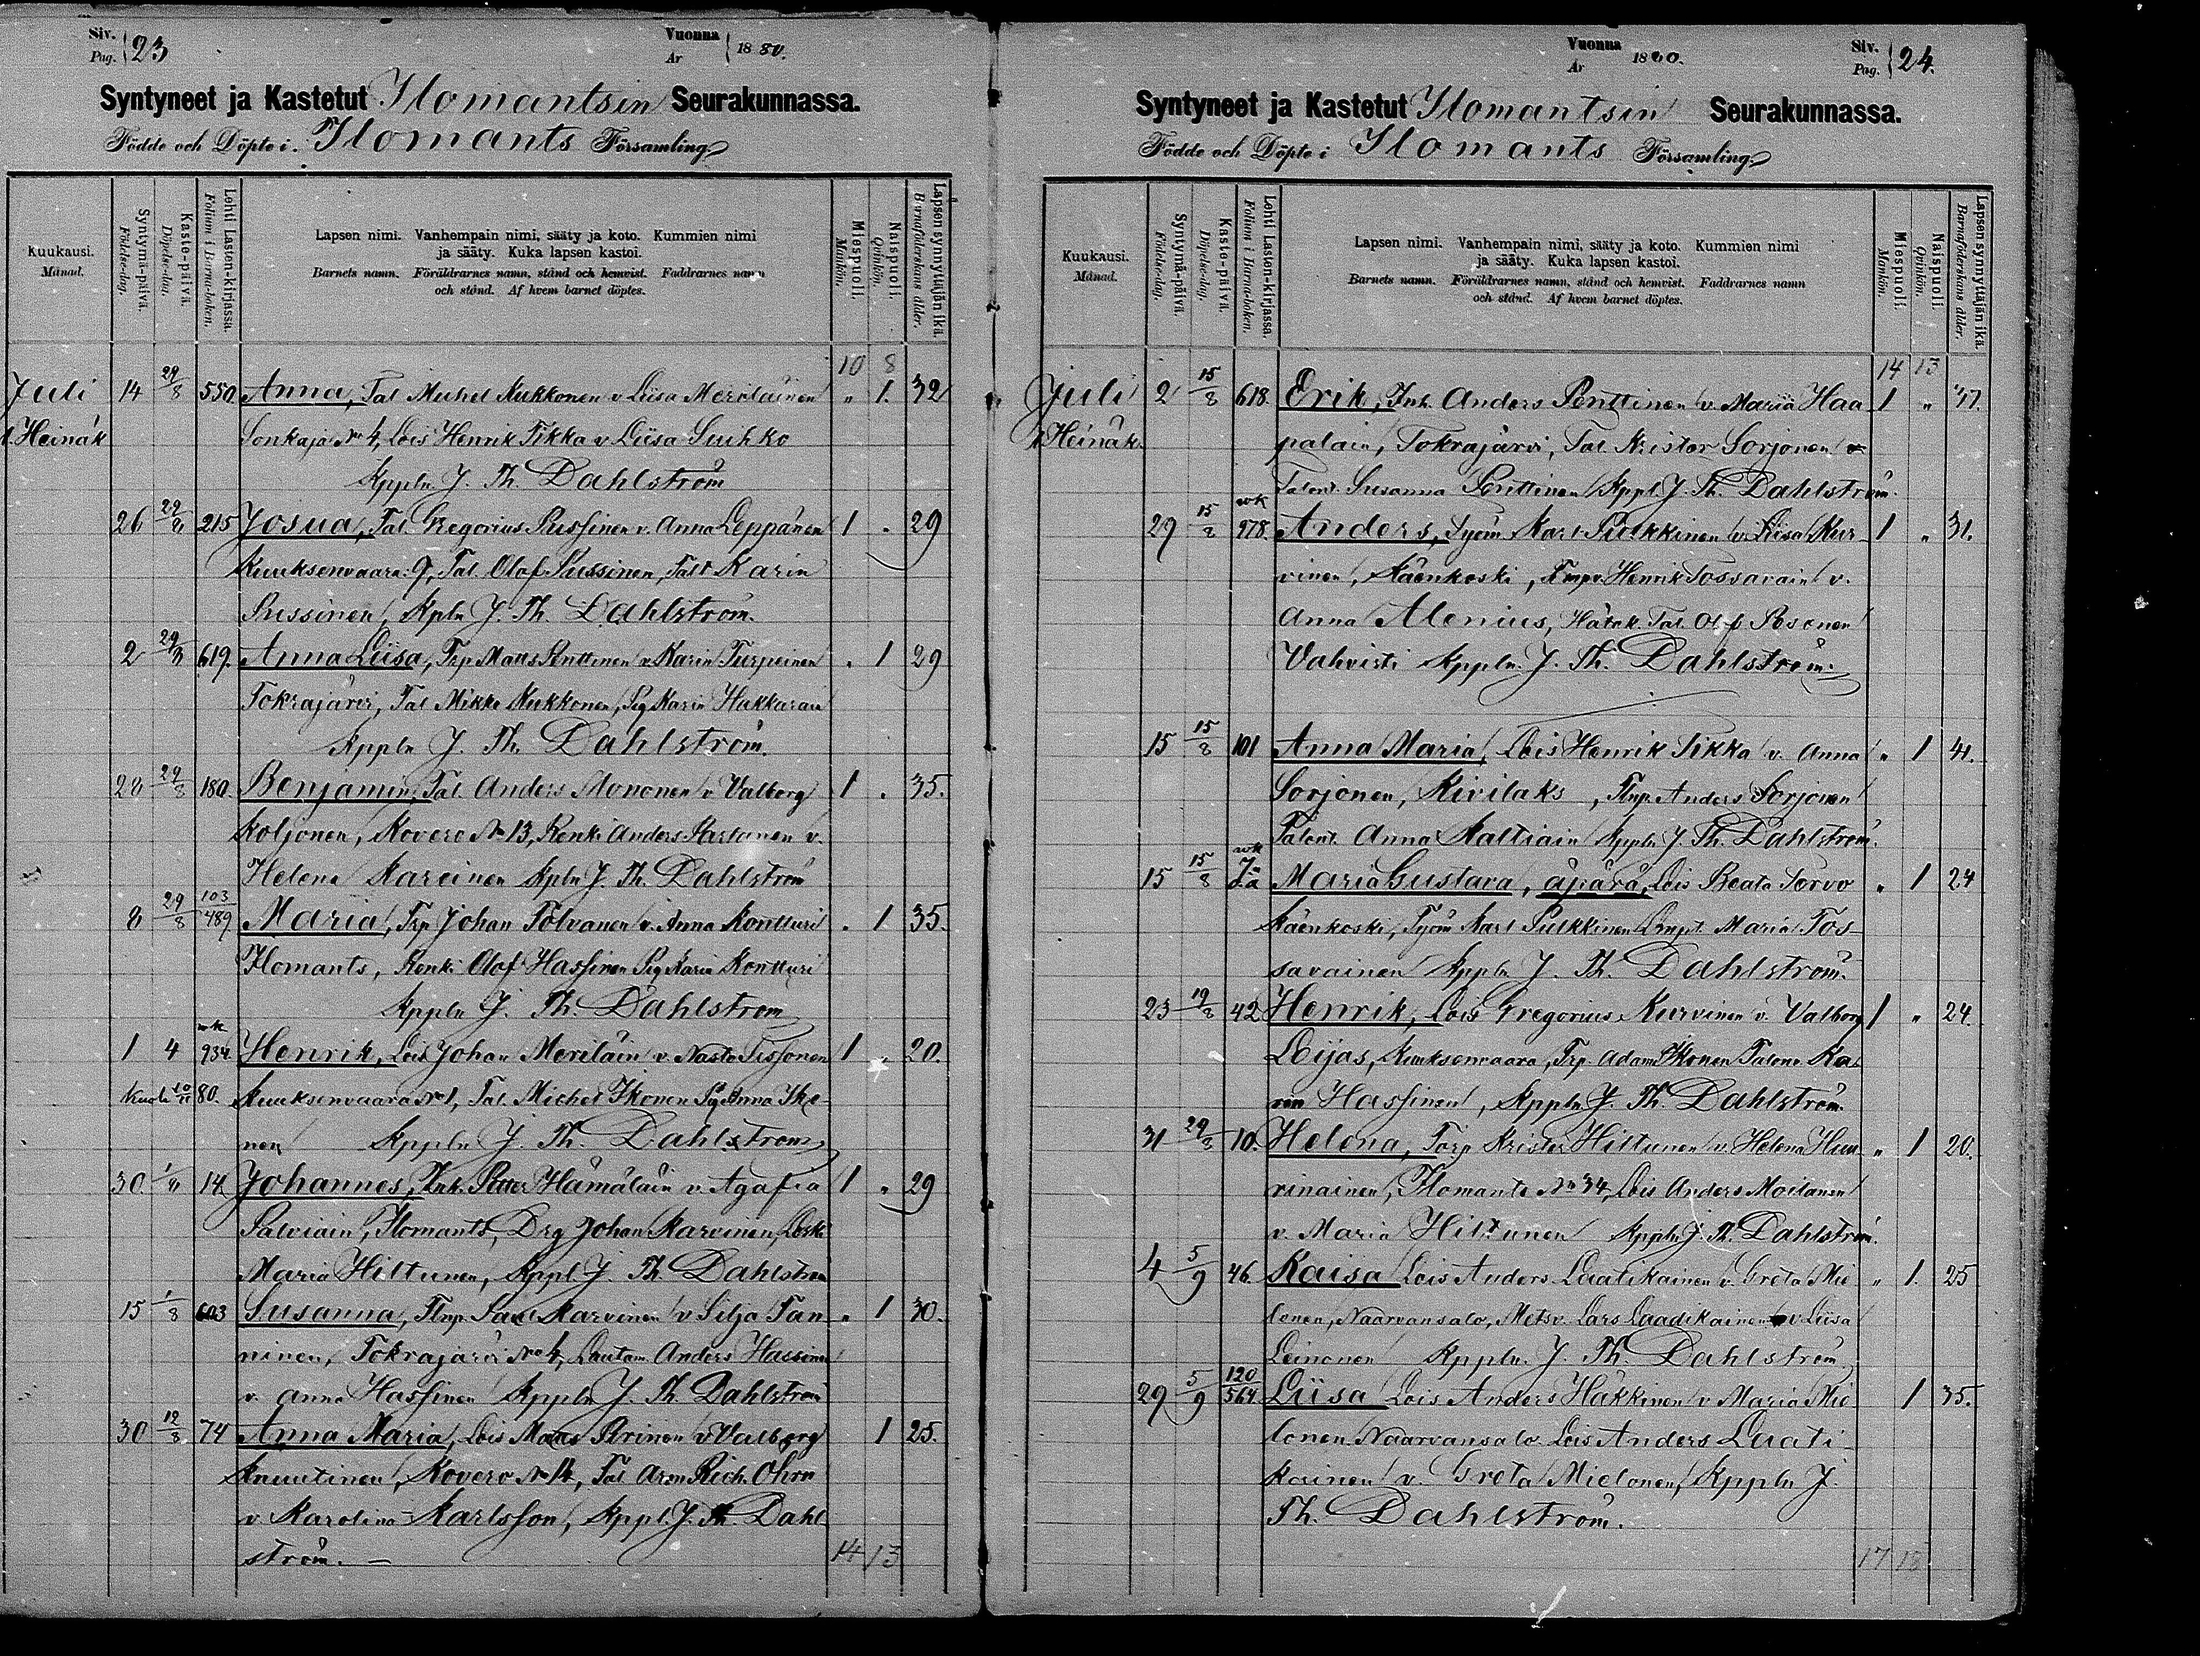 Siv. Pag. 23
Vuonna År 1880.
Syntyneet ja Kastetut Ilomantsin Seurakunnassa.
Födde och Döpte i Ilomants Församling
Kuukausi. Månad.
Syntymä-päivä. Födelse-dag.
Kaste-päivä. Döpelse-dag.
Lehti Lasten-kirjassa. Folium i Barna-boken.
Lapsen nimi. Vanhempain nimi, sääty ja koto. Kummien nimi
ja sääty. Kuka lapsen kastoi.
Barnets namn. Föräldrarnes namn, stånd och hemvist. Faddrarnes namn
och stånd. Af hvem barnet döptes.
Miespuoli. Mankön.
Naispuoli. Qvinkön.
Lapsen synnyttäjän ikä. Barnaföderskans ålder.
10 8
Juli 14 29/8 550 Anna, Tal Michel Kukkonen v Liisa Meriläinen " 1. 32
l. Heinäk Sonkaja No 4, Lois Henrik Tikka v Liisa Suhko
Kppln J. Th. Dahlström
26 29/8 215 Josua, Tal. Gregorius Pussinen v. Anna Leppänen 1 . 29
Kuuksenvaara 9, Tal. Olof Pussinen, Talt Karin
Pussinen, Kpln J. Th. Dahlström.
2 29/8 619. Anna Liisa, Trp Matts Penttinen v Karin Turpeinen . 1 29
Tokrajärvi, Tal Mikko Kukkonen, Pig Karin Hakkarain
Kppln J. Th. Dahlström.
28 29/8 180. Benjamin, Tal. Anders Mononen v Valborg 1 . 35.
Koljonen, Kovero No 13, Renki Anders Kartanen v.
Helena Kareinen Kpln J. Th. Dahlström
8 29/8 103/489 Maria, Trp Johan Tolvanen v. Anna Kontturi . 1 35.
Ilomants, Renki Olof Hassinen Pig Karin Kontturi
Kppln J. Th. Dahlström
1 4 wk 934. Henrik, Lois Johan Meriläin v. Nasto Sissonen 1 . 20.
Kuoli 10/11 80. Kuuksenvaara No 1, Tal. Michel Ikonen Pig Anna Iko-
nen Kppln J. Th. Dahlström
30. 14 Johannes, Ink. Petter Hämäläin v. Agafia 1 " 29
Salviain, Ilomants, Drg Johan Karvinen, Leski
Maria Hiltunen, Kppl J. Th. Dahlström
15 1/8 603 Susanna, Tlnp. Paul Karvinen v Silja Tan- " 1 30.
ninen, Tokrajärvi No 4, Lautam. Anders Hassinen
v. Anna Hassinen Kppln J. Th. Dahlström
30 12/8 74 Anna Maria, Lois Matts Piirinen v Valborg 1 25.
Knuutinen, Kovero No 14, Tal Aron Rich. Ohvo
v Karolina Karlsson, Kppl. J. Th. Dahl
ström. — 14 13
Vuonna År 1880.
Siv. Pag. 24.
Syntyneet ja Kastetut Ilomantsin Seurakunnassa.
Födde och Döpte i Ilomants Församling
Kuukausi. Månad.
Syntymä-päivä. Födelse-dag.
Kaste-päivä. Döpelse-dag.
Lehti Lasten-kirjassa. Folium i Barna-boken.
Lapsen nimi. Vanhempain nimi, sääty ja koto. Kummien nimi
ja sääty. Kuka lapsen kastoi.
Barnets namn. Föräldrarnes namn, stånd och hemvist. Faddrarnes namn
och stånd. Af hvem barnet döptes.
Miespuoli. Mankön.
Naispuoli. Qvinkön.
Lapsen synnyttäjän ikä. Barnaföderskans ålder.
14 13
Juli 2 15/8 618 Erik, Ink. Anders Penttinen v. Maria Haa 1 "
l. Heinäk. palain, Tokrajärvi, Tal. Krister Sorjonen v
Talont. Susanna Penttinen Kppl. J. Th. Dahlström.
29 15/8 wk 978. Anders, Työm. Karl Pulkkinen v. Liisa Kur- 1 " 31.
vinen, Käenkoski, Henrik Tossavain v.
Anna Alenius, Hätäk. Tal. Olof Posonen
Vahvisti Kppln. J. Th. Dahlström.
15 15/8 101 Anna Maria, Lois Henrik Tikka v. Anna " 1 41.
Sorjonen, Kivilaks, Tlnp. Anders Sorjonen
Talont. Anna Kaltiain Kppln J. Th. Dahlström.
15 15/8 wk Maria Gustava, äpärä, Lois Beata Torvo " 1 24
Käenkoski, Työm Karl Pulkkinen Maria Tos-
savainen Kppln J. Th. Dahlström.
23 19/8 42 Henrik, Lois Gregorius Kurvinen v. Valborg 1 " 24.
Loijas, Kuuksenvaara, Trp Adam Ikonen Talont Ka-
rin Hassinen, Kppln J. Th. Dahlström.
31 29/8 10. Helena, Torp. Krister Hiltunen v. Helena Huu- " 1 20.
rinainen, Ilomants No 34, Lois Anders Moilanen
v. Maria Hiltunen Kppln J. Th. Dahlström.
4 5/9 46. Kaisa Lois Anders Laatikainen v. Greta Mie " 1. 25
lonen, Naarvansalo, Metsv. Lars Laadikainen v Liisa
Leinonen Kppln. J. Th. Dahlström.
29 5/9 120/564 Liisa Lois Anders Häkkinen v Maria Mie 1 35.
lonen Naarvansalo. Lois Anders Laati-
kainen v. Greta Mielonen, Kppln J.
Th. Dahlström.
17 18